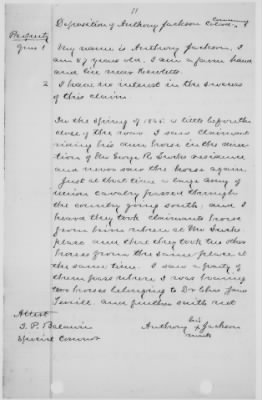 11
Deposition of Anthony Jackson Colored
Property
Ques 1 My name is Anthony Jackson, I
am 89 years old. I am a farm hand
and live near
2 I have no interest in the success
of this claim.
In the Spring of 1865, a little before the
close of the war I saw claimant
riding his own horse in the direc
tion of Mr George R. residence
and never saw the horse again.
Just at that time a large army of
union cavalry passed through
the country going south; and I
heard they took claimants horse
from him when at Mr
place and that they took two other
horses from the same place at
the same time. I saw a party of
them pass where I was having
two horses belonging to Dr Chas
and further saith not
Attest
Anthony his x mark Jackson
T. P. Baldwin
Special Comr